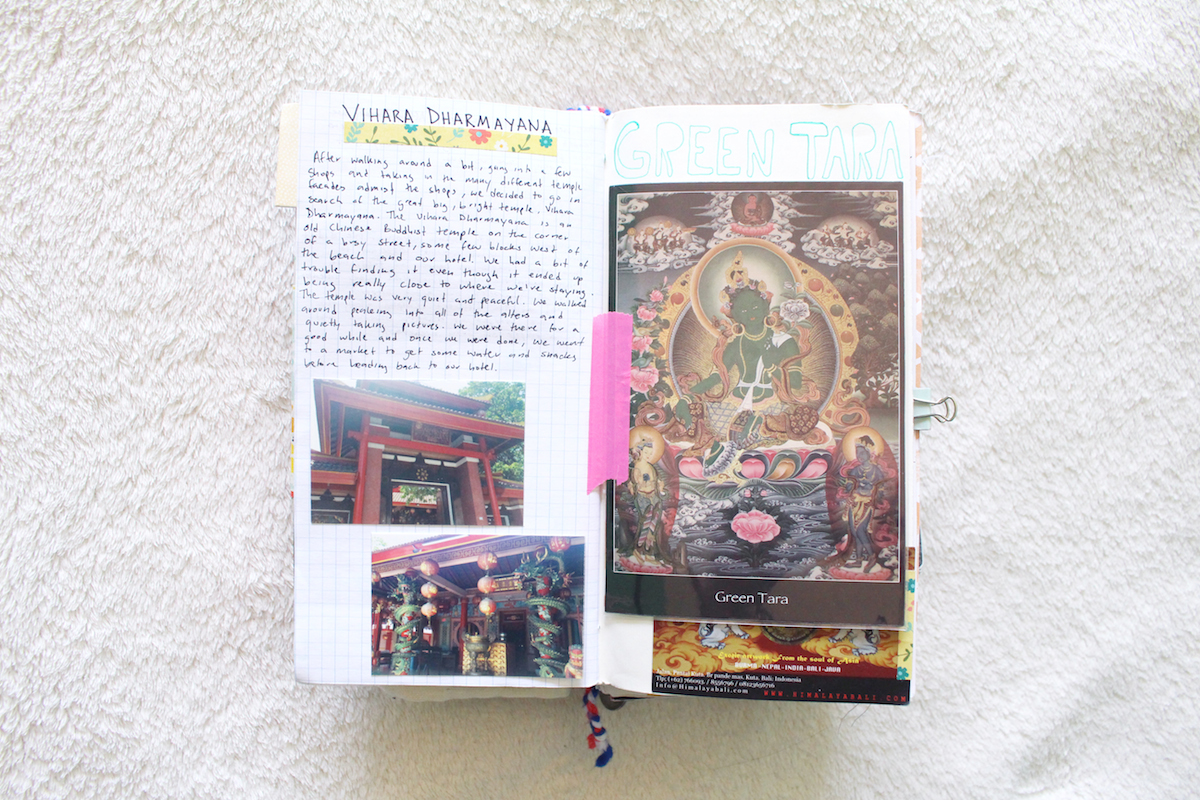 VIHARA DHARMAYANA
After walking around a bit, going into a few
shops and taking in the many different temple
facades admist the shops, we decided to go in
search of the great big, bright temple, Vihara
Dharmayana. The Vihara Dharmayana is an
old Chinese Buddhist temple on the corner
of a busy street, some few blocks west of
the beach and our hotel. We had a bit of
trouble finding it even though it ended up
being really close to where we're staying.
The temple was very quiet and peaceful. We walked
around peaking into all of the alters and
quietly taking pictures. We were there for a
good while and once we were done, we went
to a market to get some water and snacks
before heading back to our hotel.
GREEN TARA
Green Tara
from the soul of Asia
BURMA-NEPAL-INDIA-BALI-JAVA
pande mas, Kuta, Bali; Indonesia
Tlp; (+62) 766093, / 8556796 / 08123656716
Info@Himalayabali.com
WWW.HIMALAYABALI.COM